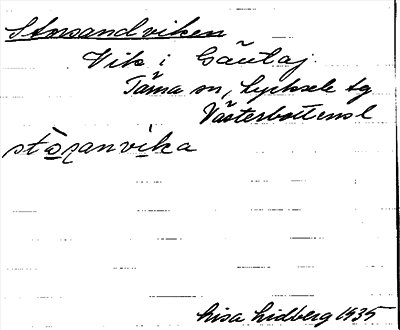 Storsandviken
Vik i Gäutaj.
Tärna sn, Lycksele tg
Västerbottens l
stòranvika
Lisa Lidberg 1935